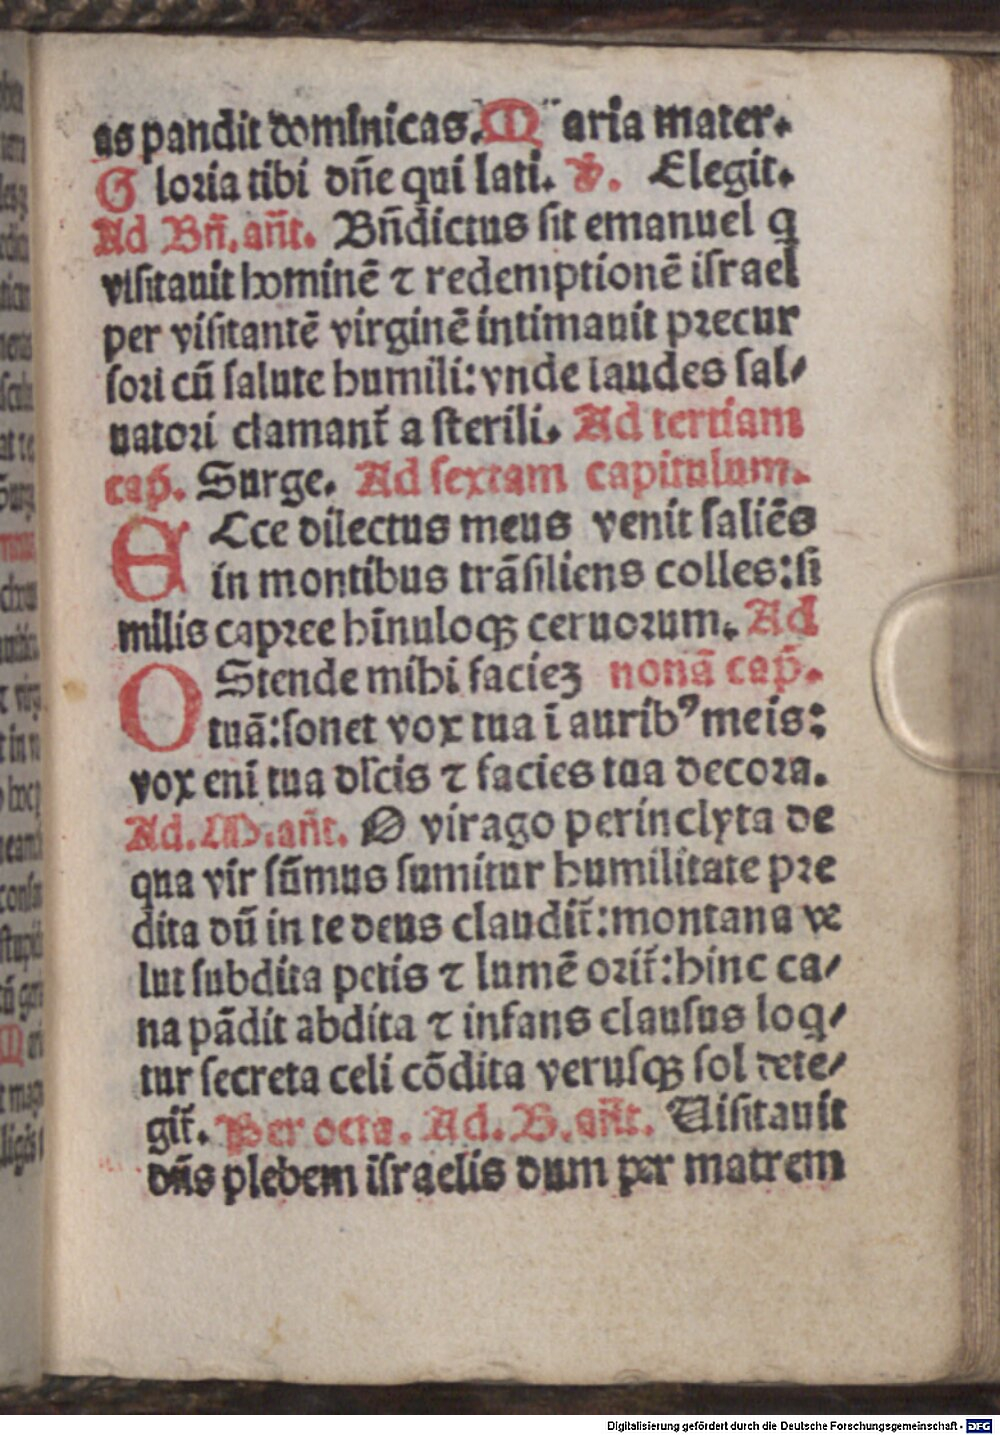 as pandit dominicas. Maria mater.
Gloria tibi dn̄e qui lati. v̄. Elegit.
Ad Bn̄. an̄t. Bn̄dictus sit emanuel q
visitauit hominē ⁊ redemptionē israel
per visitantē virginē intimauit precur
sori cū salute humili: vnde laudes sal⸗
uatori clamant̄ a sterili. Ad tertiam
cap̄. Surge. Ad sextam capitulum.
ECce dilectus meus venit saliēs
in montibus trāsiliens colles: si
milis capree hīnuloqꝫ ceruorum. Ad
OStende mihi facieꝫ nonā cap̄.
tuā: sonet vox tua ī aurib⁹ meis:
vox eni tua dlcis ⁊ facies tua decora.
Ad. M. an̄t. O virago perinclyta de
qua vir sūmus sumitur humilitate pre
dita dū in te deus claudit̄: montana ve
lut subdita petis ⁊ lumē orit̄: hinc ca⸗
na pādit abdita ⁊ infans clausus loq⸗
tur secreta celi cōdita verusqꝫ sol dete⸗
git̄. Per octa. Ad. B. an̄t. Uisitauit
dn̄s plebem israelis dum per matrem
Digitalisierung gefördert durch die Deutsche Forschungsgemeinschaft - DFG